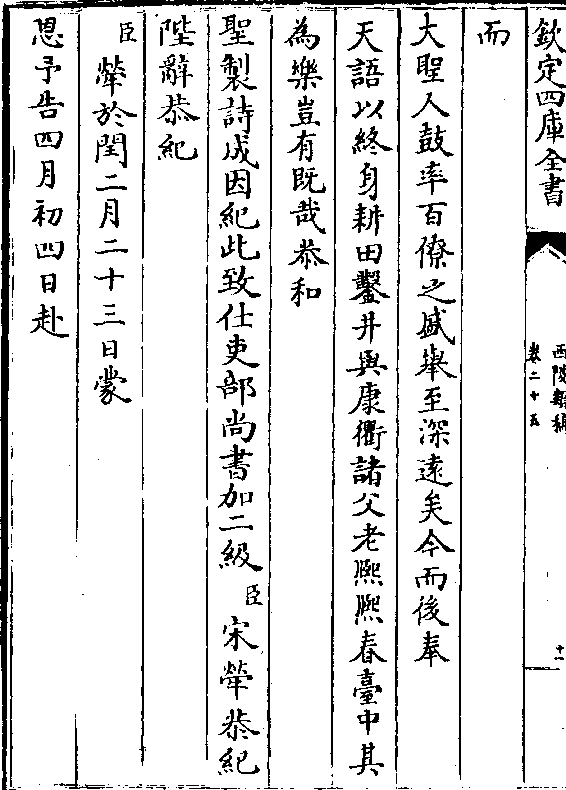 欽定四庫全書
西陂類稿
卷二十五
十一
而
大聖人鼓率百僚之盛舉至深遠矣今而後奉
天語以終身耕田鑿井與康衢諸父老熈熈春臺中其
為樂豈有既哉恭和
聖製詩成因紀此致仕吏部尚書加二級臣宋犖恭紀
陛辭恭紀
臣犖於閏二月二十三日蒙
恩予告四月初四日赴